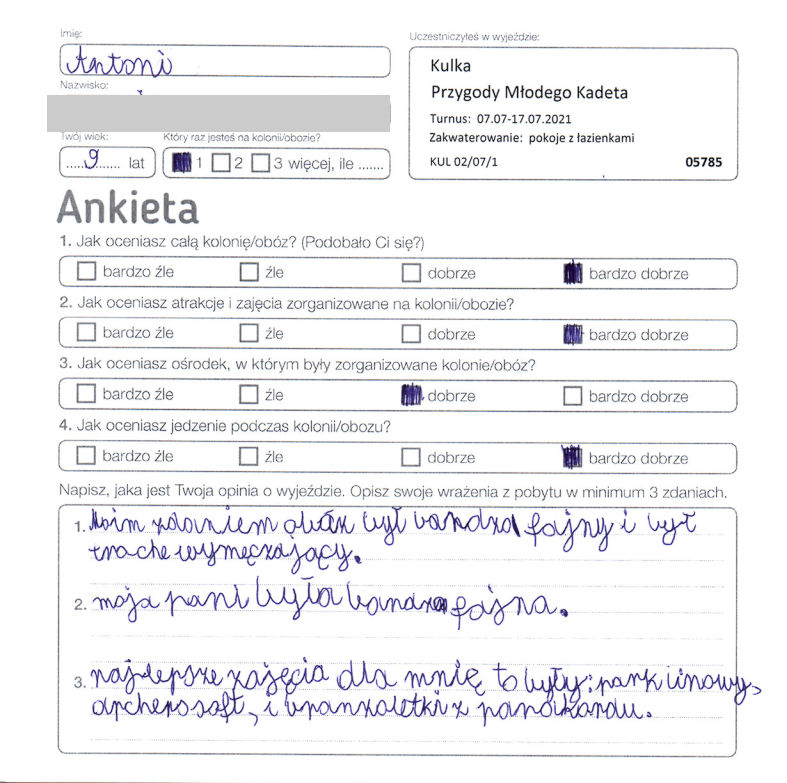 Imię:
Antoni
Nazwisko:
Twój wiek:
9 lat
Który raz jesteś na kolonii/obozie?
1 2 3 więcej, ile .......
Uczestniczyłeś w wyjeździe:
Kulka
Przygody Młodego Kadeta
Turnus: 07.07-17.07.2021
Zakwaterowanie: pokoje z łazienkami
KUL 02/07/1 05785
Ankieta
1. Jak oceniasz całą kolonię/obóz? (Podobało Ci się?)
bardzo źle źle dobrze bardzo dobrze
2. Jak oceniasz atrakcje i zajęcia zorganizowane na kolonii/obozie?
bardzo źle źle dobrze bardzo dobrze
3. Jak oceniasz ośrodek, w którym były zorganizowane kolonie/obóz?
bardzo źle źle dobrze bardzo dobrze
4. Jak oceniasz jedzenie podczas kolonii/obozu?
bardzo źle źle dobrze bardzo dobrze
Napisz, jaka jest Twoja opinia o wyjeździe. Opisz swoje wrażenia z pobytu w minimum 3 zdaniach.
1. Moim zdaniem obóz był bardzo fajny i był
troche wymęczający.
2. moja pani była bardzo fajna.
3. najlepsze zajęcia dla mnię to były: park linowy,
archerosoft, i branzoletki z paracordu.